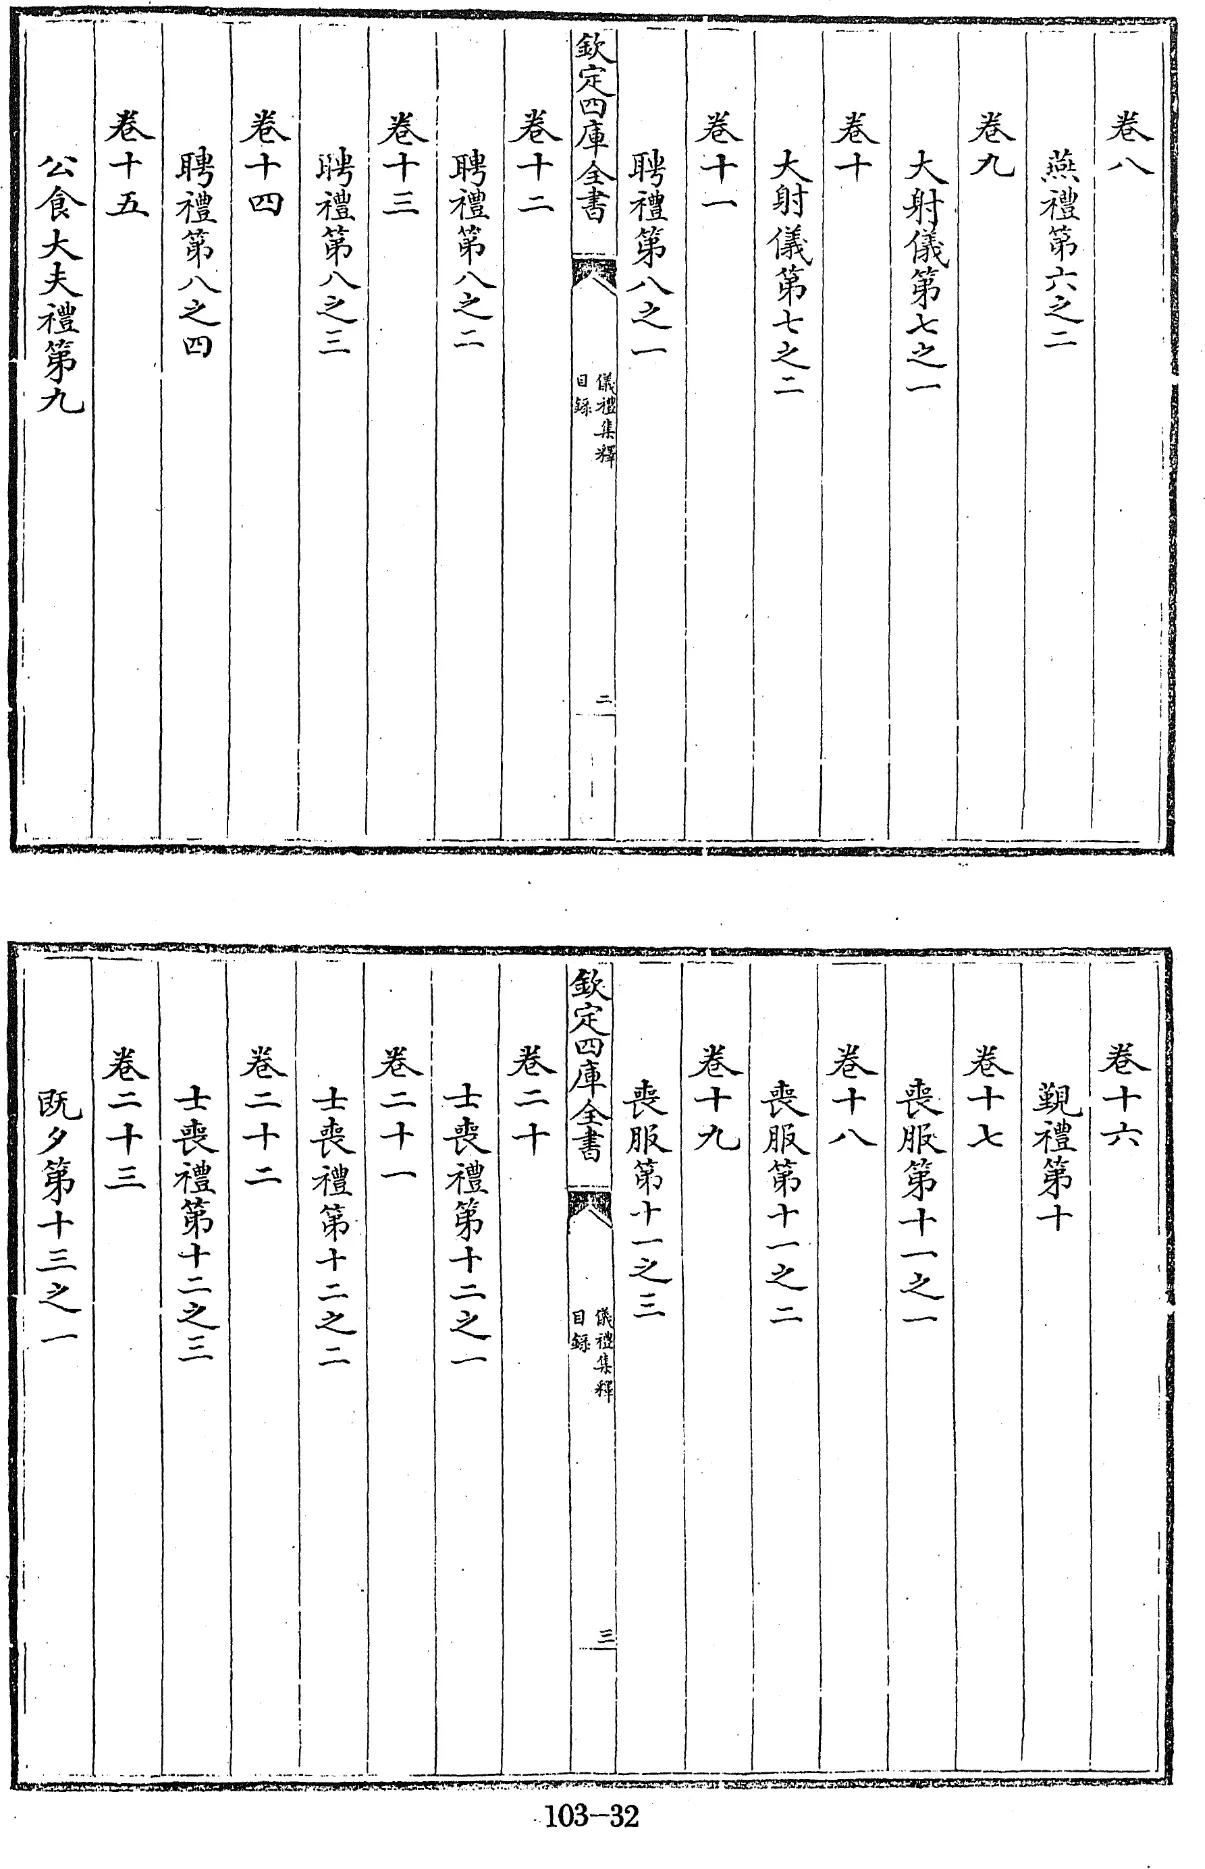 卷八
燕禮第六之二
卷九
大射儀第七之一
卷十
大射儀第七之二
卷十一
聘禮第八之一
欽定四庫全書
儀禮集釋
目錄
二
卷十二
聘禮第八之二
卷十三
聘禮第八之三
卷十四
聘禮第八之四
卷十五
公食大夫禮第九
卷十六
覲禮第十
卷十七
喪服第十一之一
卷十八
喪服第十一之二
卷十九
喪服第十一之三
欽定四庫全書
儀禮集釋
目錄
三
卷二十
士喪禮第十二之一
卷二十一
士喪禮第十二之二
卷二十二
士喪禮第十二之三
卷二十三
既夕第十三之一
103-32